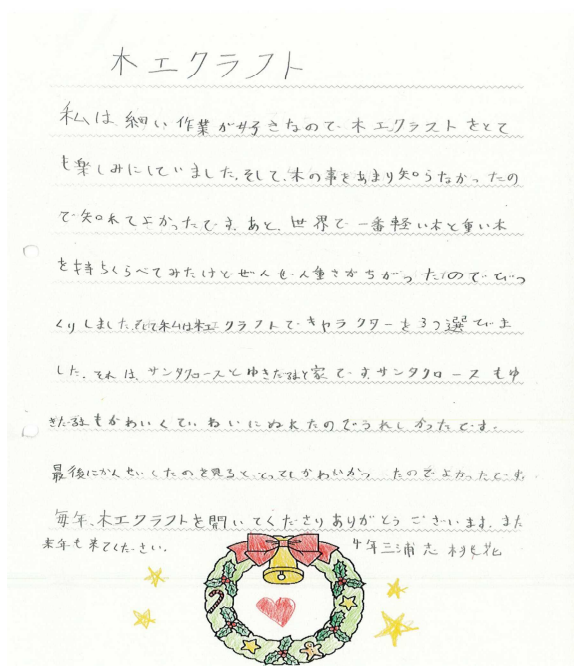 木工クラフト
私は細い作業が好きなので木工クラフトをとて
も楽しみにしていました。そして、木の事をあまり知らなかったの
で知れてよかったです。あと、世界で一番軽い木と重い木
を持ちくらべてみたけどぜんぜん重さがちがったのでびっ
くりしました。そして私は木工クラフトでキャラクターを3つ選びま
した。それは、サンタクロースとゆきだるまと家です。サンタクロースもゆ
きだるまもかわいくていねいにぬれたのでうれしかったです。
最後にかんせいしたのを見ると、とってもかわいかったのでよかったです。
毎年、木工クラフトを開いてくださりありがとうございます。また
来年も来てください。 4年三浦志桃花